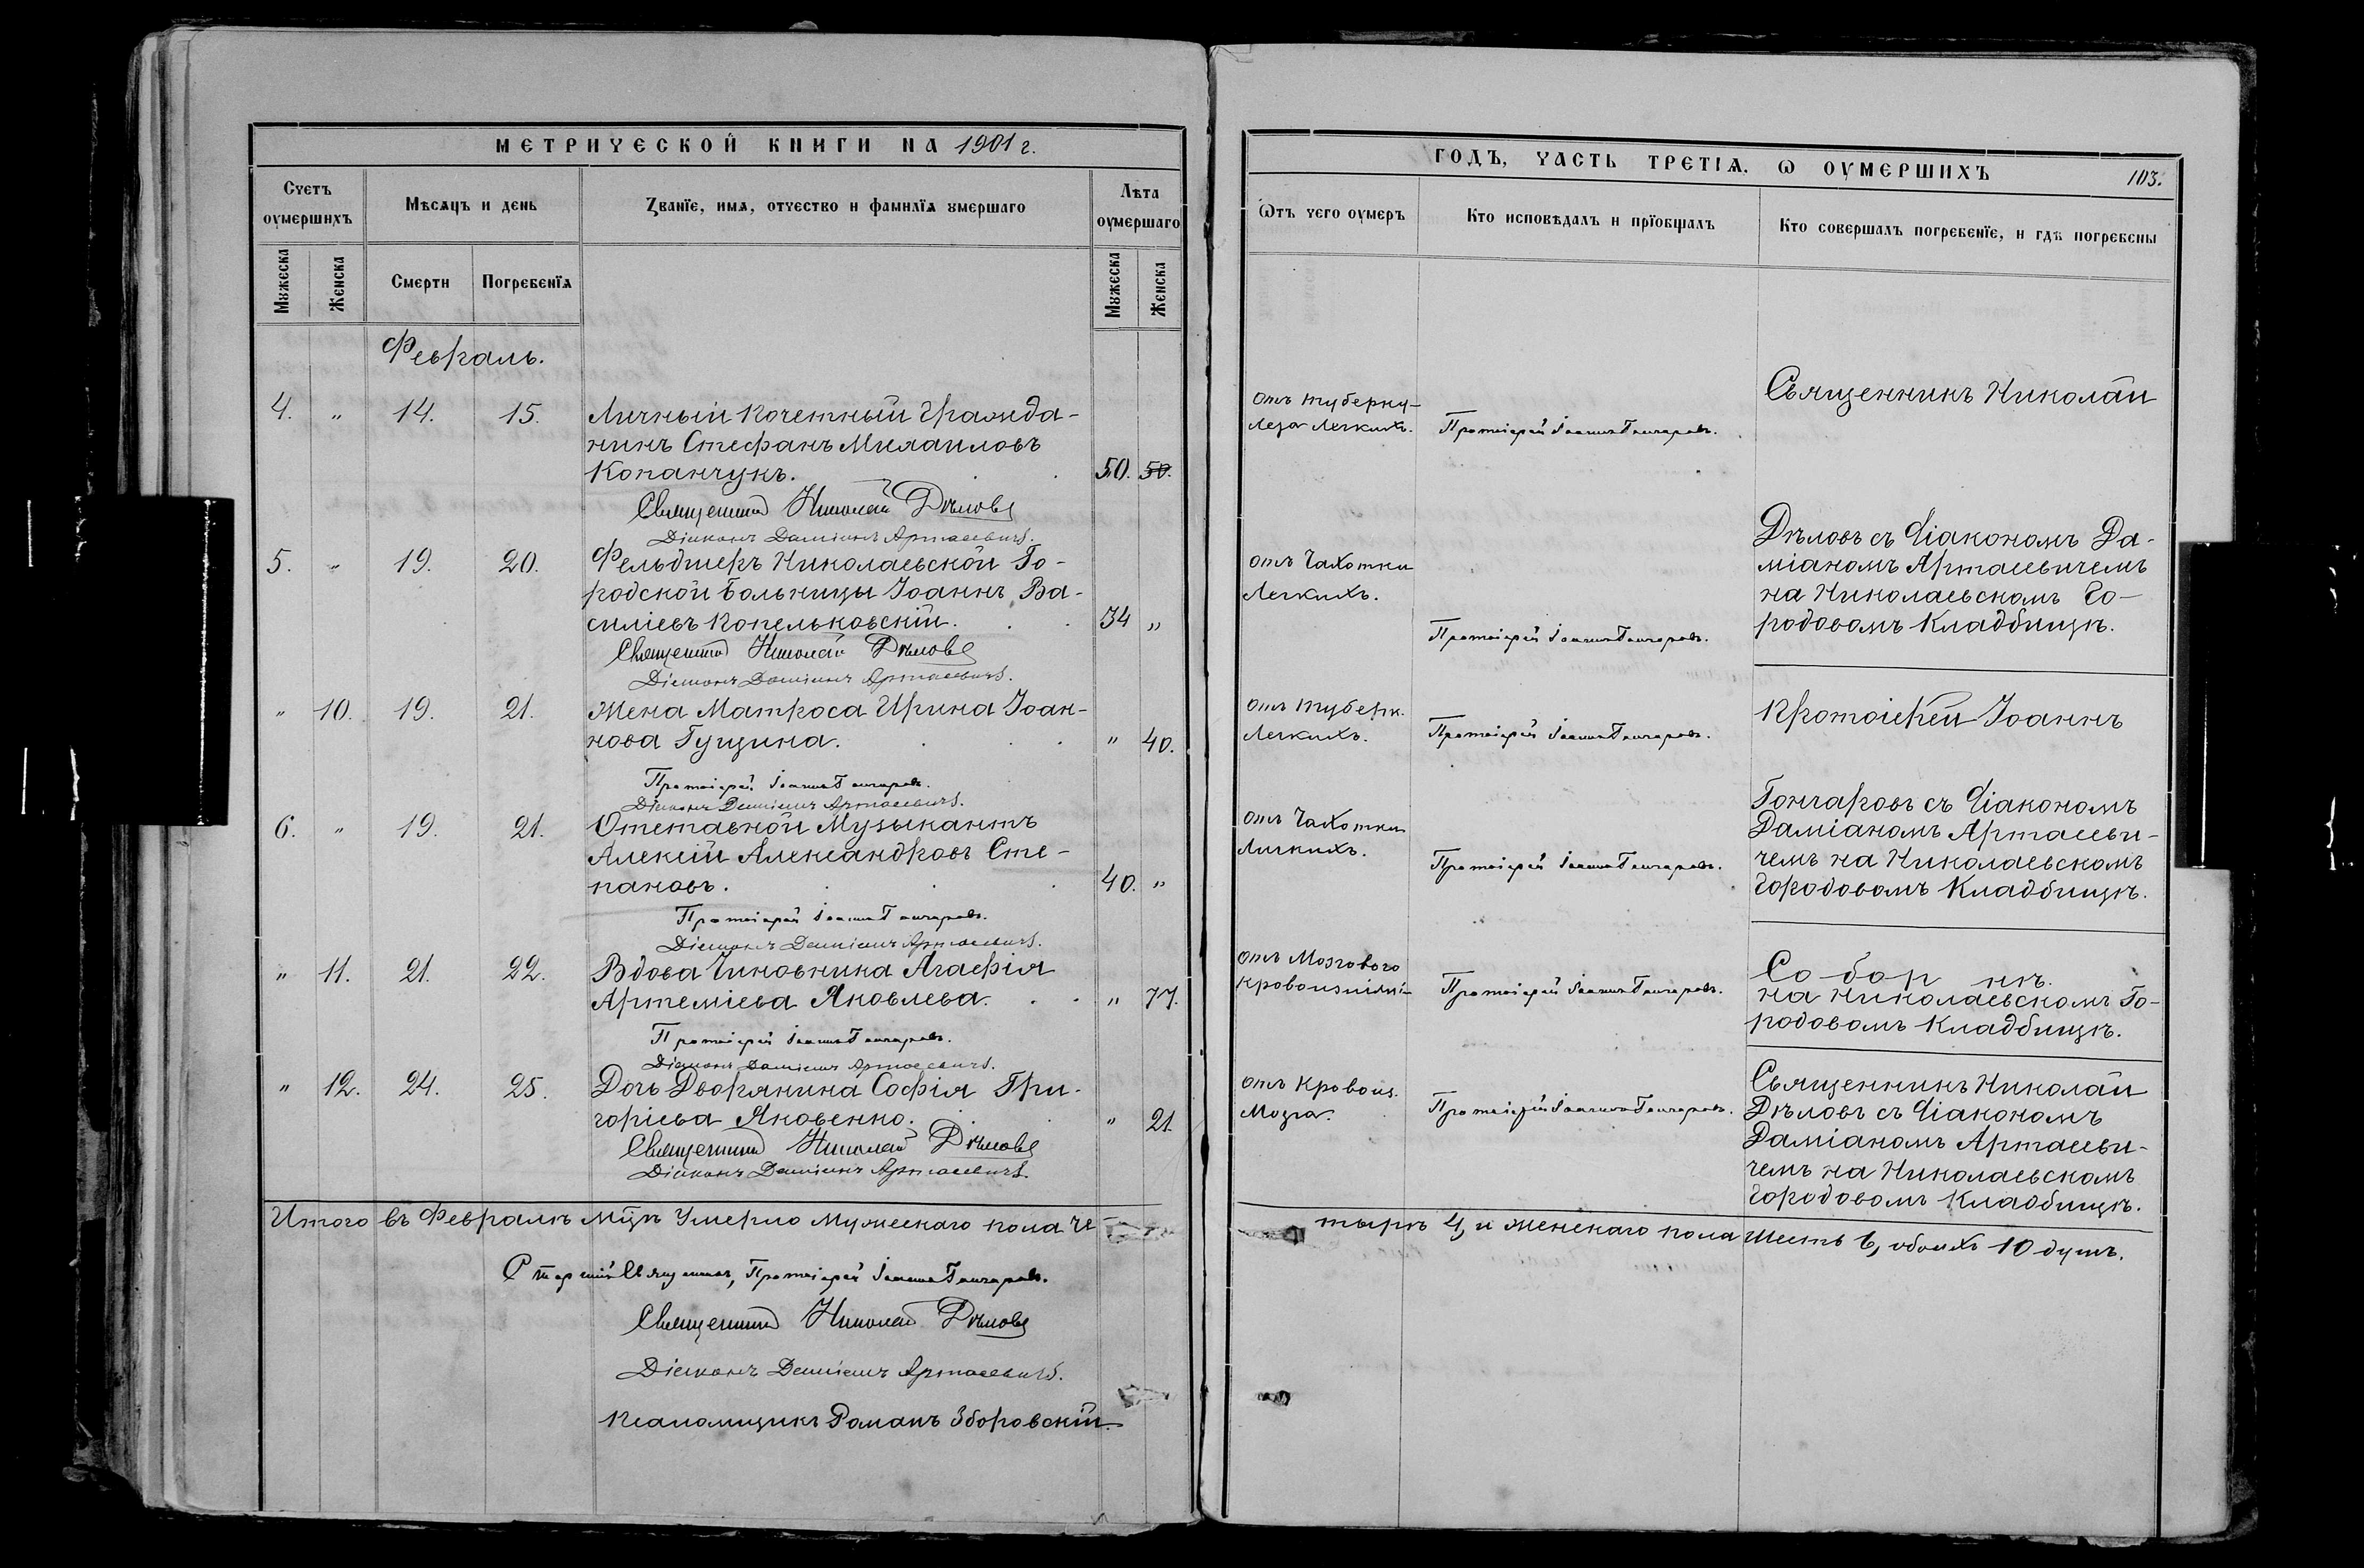 МЕТРИЧЕСКОЙ КНИГИ НА 1901 г.
Счетъ оумершихъ
Мѣсяцъ и день
Званїе, имя, отчество и фамилїя умершаго
Лѣта оумершаго
Мужеска
Женска
Смерти
Погребенїя
Мужеска
Женска
Февраль.
4. " 14. 15. Личный почетный гражда-
нинъ Стефанъ Михаиловъ
Копанчукъ. 50. 50.
Священникъ Николай Дѣловъ
Діаконъ Даміанъ Артасевичъ.
5. " 19. 20. Фельдшеръ Николаевской Го-
родской больницы Іоаннъ Ва-
силіевъ Копельковскій. 34 "
Священникъ Николай Дѣловъ
Діаконъ Даміанъ Артасевичъ.
" 10. 19. 21. Жена Матроса Ирина Іоан-
нова Гущина. " 40.
Протоіерей Іоаннъ Гончаровъ.
Діаконъ Даміанъ Артасевичъ.
6. " 19. 21. Отставной Музыкантъ
Алексій Александровъ Сте-
пановъ. 40. "
Протоіерей Іоаннъ Гончаровъ.
Діаконъ Даміанъ Артасевичъ.
" 11. 21. 22. Вдова Чиновника Агафія
Артеміева Яковлева. " 77.
Протоіерей Іоаннъ Гончаровъ.
Діаконъ Даміанъ Артасевичъ.
" 12. 24. 25. Дочь Дворянина Софія Гри-
горіева Яковенко. " 21.
Священникъ Николай Дѣловъ
Діаконъ Даміанъ Артасевичъ.
Итого въ Февралѣ мцѣ умерло мужескаго пола че-
Старшій Священникъ, Протоіерей Іоаннъ Гончаровъ.
Священникъ Николай Дѣловъ
Діаконъ Даміанъ Артасевичъ.
Псаломщикъ Романъ Зборовскій.
ГОДЪ, ЧАСТЬ ТРЕТІЯ, Ѡ ОУМЕРШИХЪ 103.
Ѿтъ чего оумеръ
Кто исповѣдалъ и прїобщалъ
Кто совершалъ погребенїе, и гдѣ погребены
отъ туберку-
леза легкихъ.
Протоіерей Іоаннъ Гончаровъ.
Священникъ Николай
Дѣловъ съ діакономъ Да-
міаномъ Артасевичемъ
на Николаевскомъ го-
родовомъ кладбищѣ.
отъ чахотки
легкихъ.
Протоіерей Іоаннъ Гончаровъ.
отъ туберк.
легкихъ.
Протоіерей Іоаннъ Гончаровъ.
Протоіерей Іоаннъ
Гончаровъ съ діакономъ
Даміаномъ Артасеви-
чемъ на Николаевскомъ
городовомъ кладбищѣ.
отъ чахотки
легкихъ.
Протоіерей Іоаннъ Гончаровъ.
отъ мозгового
кровоизліянія
Протоіерей Іоаннъ Гончаровъ.
Со бор нѣ.
на Николаевскомъ го-
родовомъ кладбищѣ.
отъ кровоиз.
мозга.
Протоіерей Іоаннъ Гончаровъ.
Священникъ Николай
Дѣловъ съ діакономъ
Даміаномъ Артасеви-
чемъ на Николаевскомъ
городовомъ кладбищѣ.
тырѣ 4, и женскаго пола шесть 6, обоихъ 10 душъ.